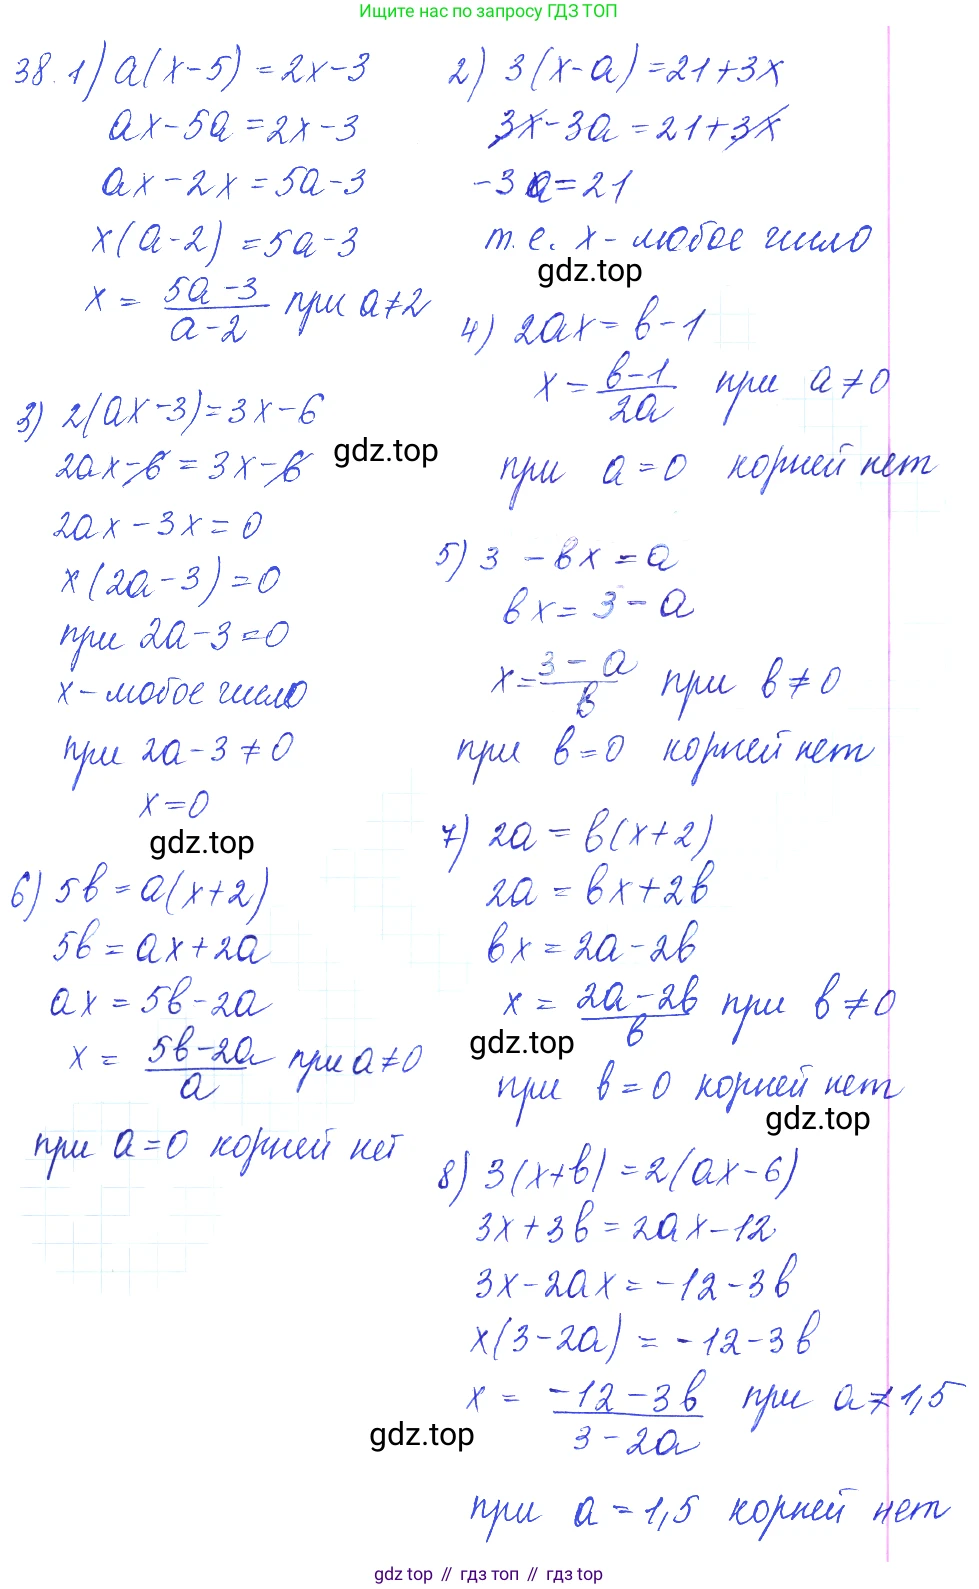 Ищите нас по запросу ГДЗ ТОП
38. 1) a(x-5) = 2x-3
ax-5a = 2x-3
ax-2x = 5a-3
x(a-2) = 5a-3
x = (5a-3)/(a-2) при a≠2
2) 3(x-a) = 21+3x
3x-3a = 21+3x
-3a = 21
т.е. x - любое число
gdz.top
3) 2(ax-3) = 3x-6
2ax-6 = 3x-6
gdz.top
2ax-3x = 0
x(2a-3) = 0
при 2a-3 = 0
x - любое число
при 2a-3 ≠ 0
x = 0
gdz.top
4) 2ax = b-1
x = (b-1)/(2a) при a≠0
при a = 0 корней нет
5) 3 - bx = a
bx = 3 - a
x = (3-a)/b при b≠0
при b = 0 корней нет
6) 5b = a(x+2)
5b = ax+2a
ax = 5b-2a
x = (5b-2a)/a при a≠0
при a = 0 корней нет
7) 2a = b(x+2)
2a = bx+2b
bx = 2a-2b
x = (2a-2b)/b при b≠0
gdz.top
при b = 0 корней нет
gdz.top
8) 3(x+b) = 2(ax-6)
3x+3b = 2ax-12
3x-2ax = -12-3b
x(3-2a) = -12-3b
x = (-12-3b)/(3-2a) при a≠1,5
gdz.top
при a = 1,5 корней нет
gdz top // гдз топ // гдз top